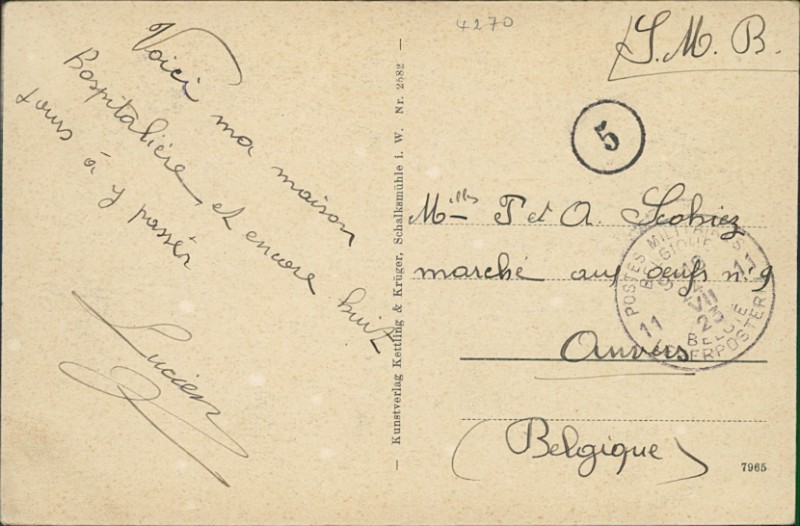 4270
S. M. B.
Voici ma maison
hospitalière et encore huit
jours à y passer
Lucien
— Kunstverlag Kettling & Krüger, Schalksmühle i. W. Nr. 2582 —
5
Mlles T et A.
marché aux oeufs n° 9
Anvers
(Belgique)
POSTES MILITAIRES
BELGIQUE
11 11
VII
23
BELGIE
7965